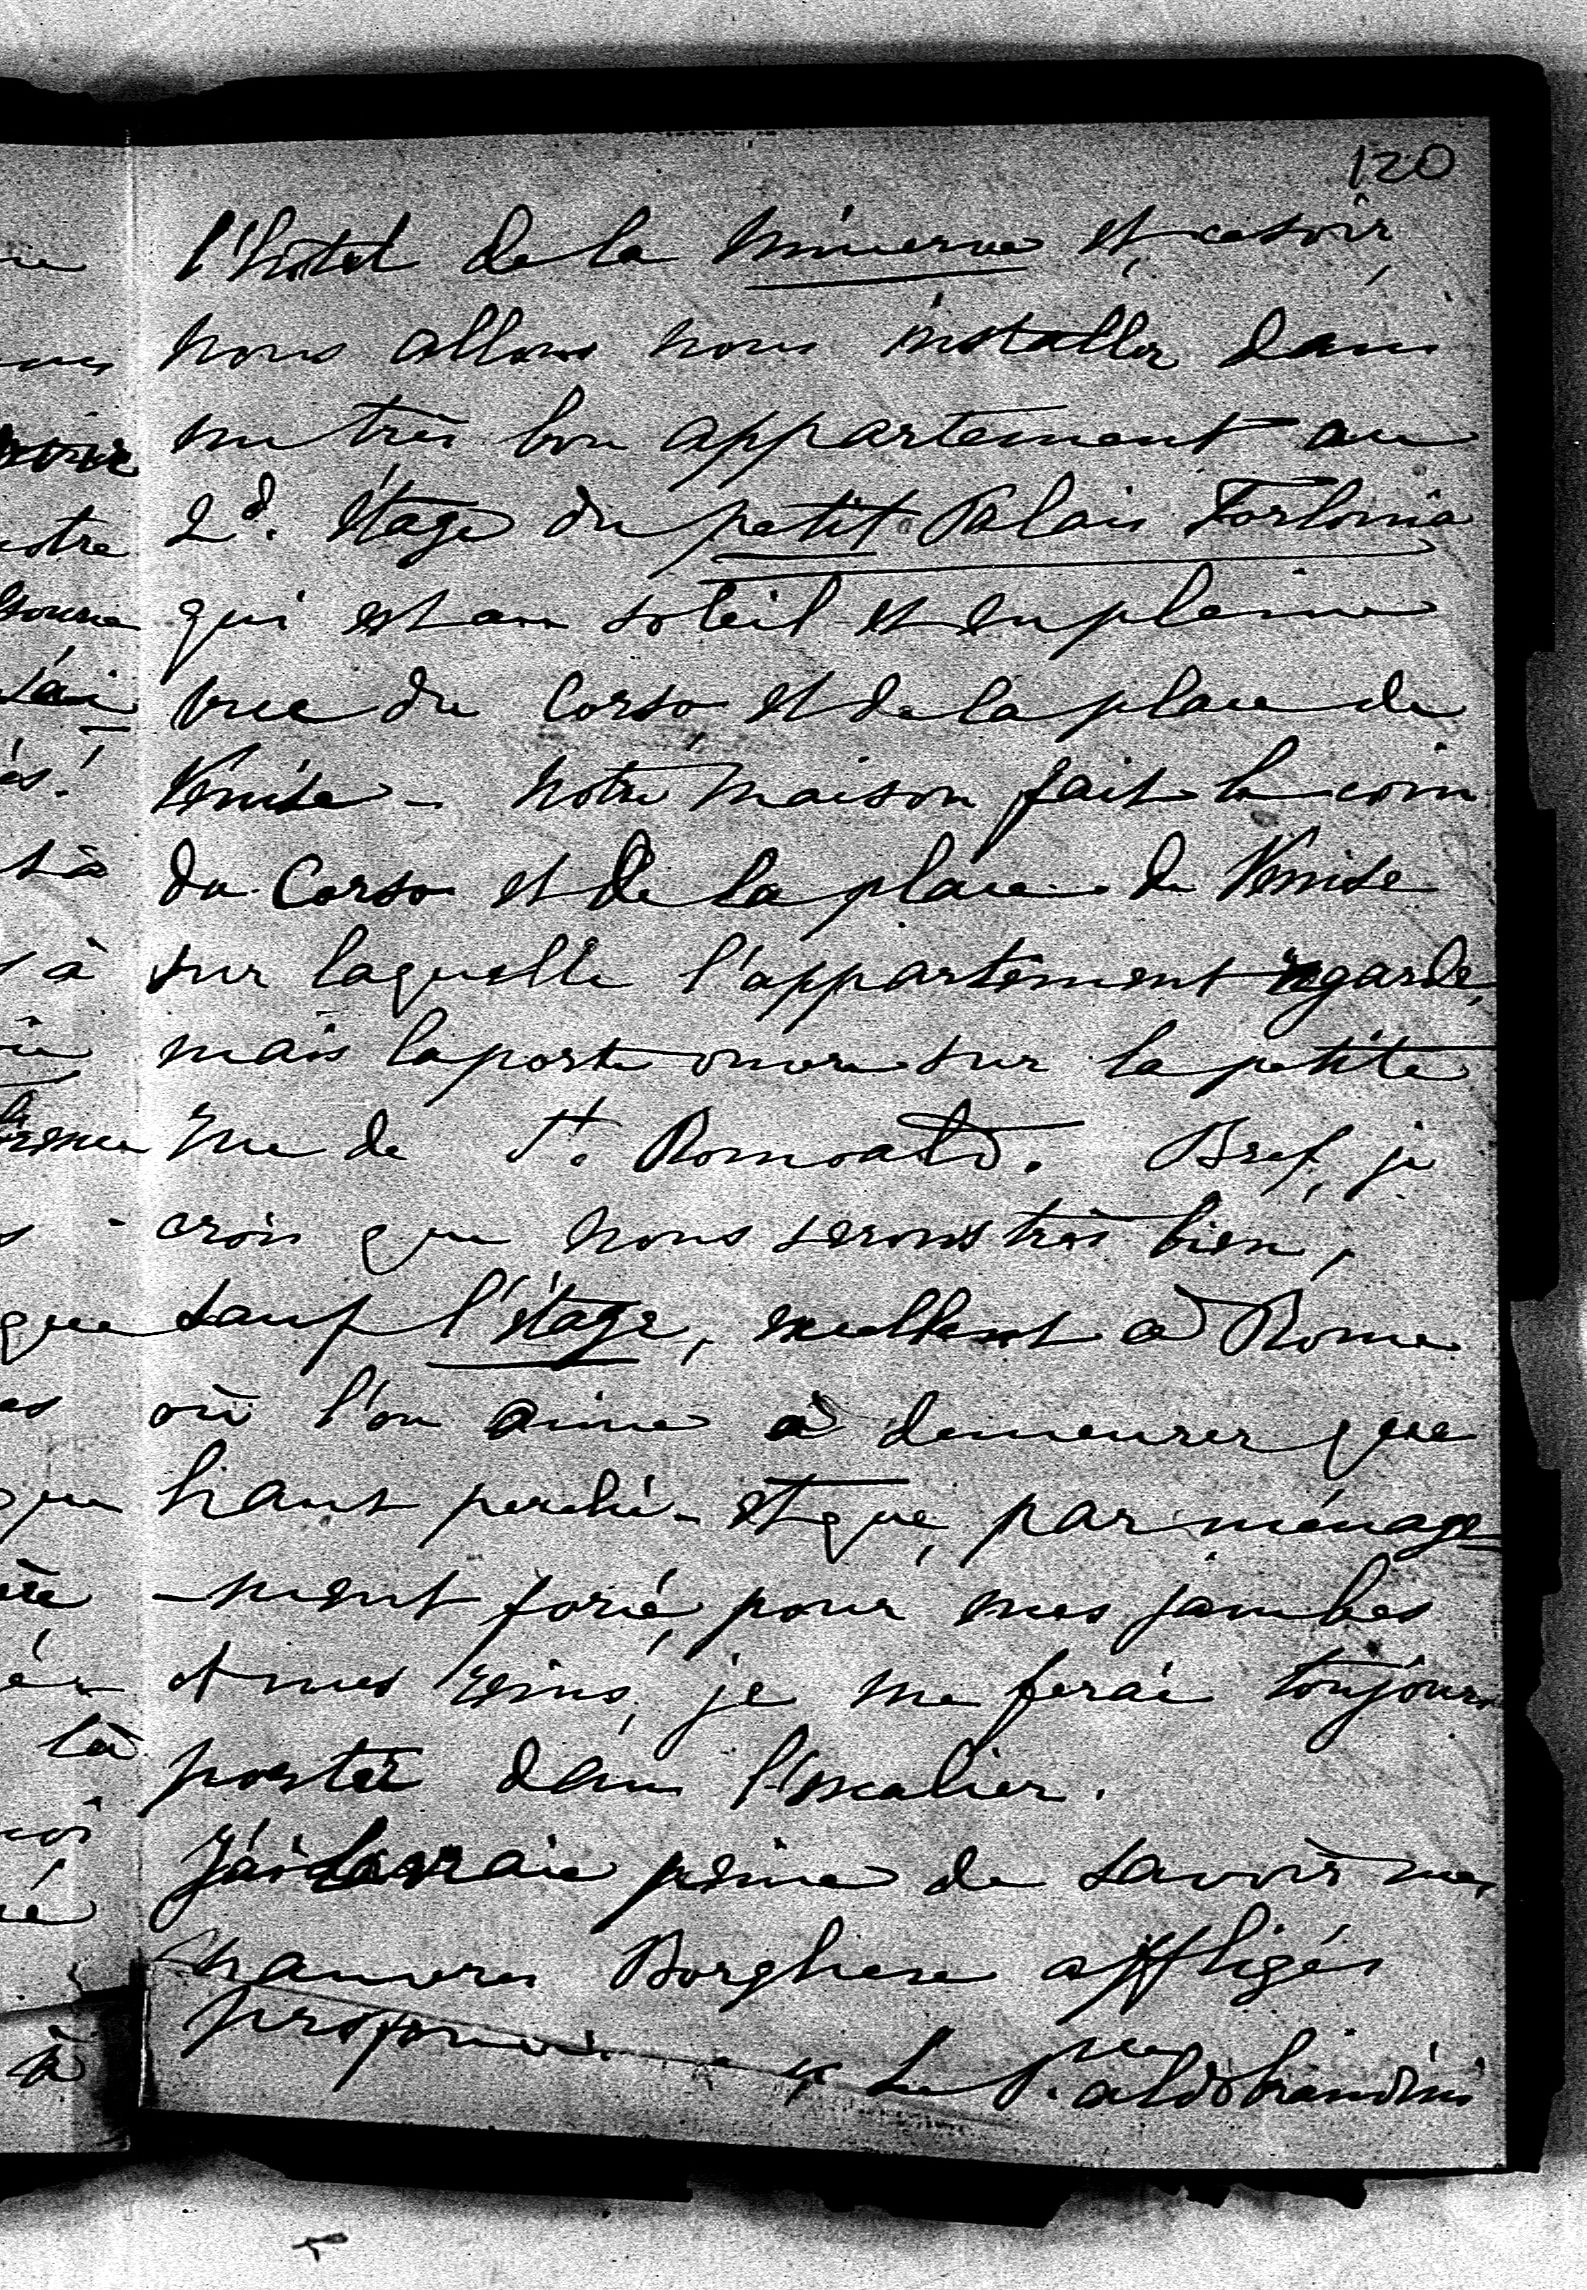 120
l'hôtel de la Minerve et, ce soir,
nous allons nous installer dans
un très bon appartement au
2d. étage du petit Palais Torlonia
qui est au soleil et en pleine
vue du Corso et de la place de
Venise - Notre maison fait le coin
du Corso et de la place de Venise
sur laquelle l'appartement regarde,
mais la porte ouvre sur la petite
rue de St. Romoald. Bref, je
crois que nous serons très bien,
sauf l'étage, excellent à Rome
où l'on aime à demeurer que
haut perché - et que, par ménage-
-ment forcé, pour mes jambes
et mes reins, je me ferai toujours
porter dans l'escalier.
J'ai la vraie peine de savoir mes
pauvres Borghese affligés
Le P. Aldobrandini